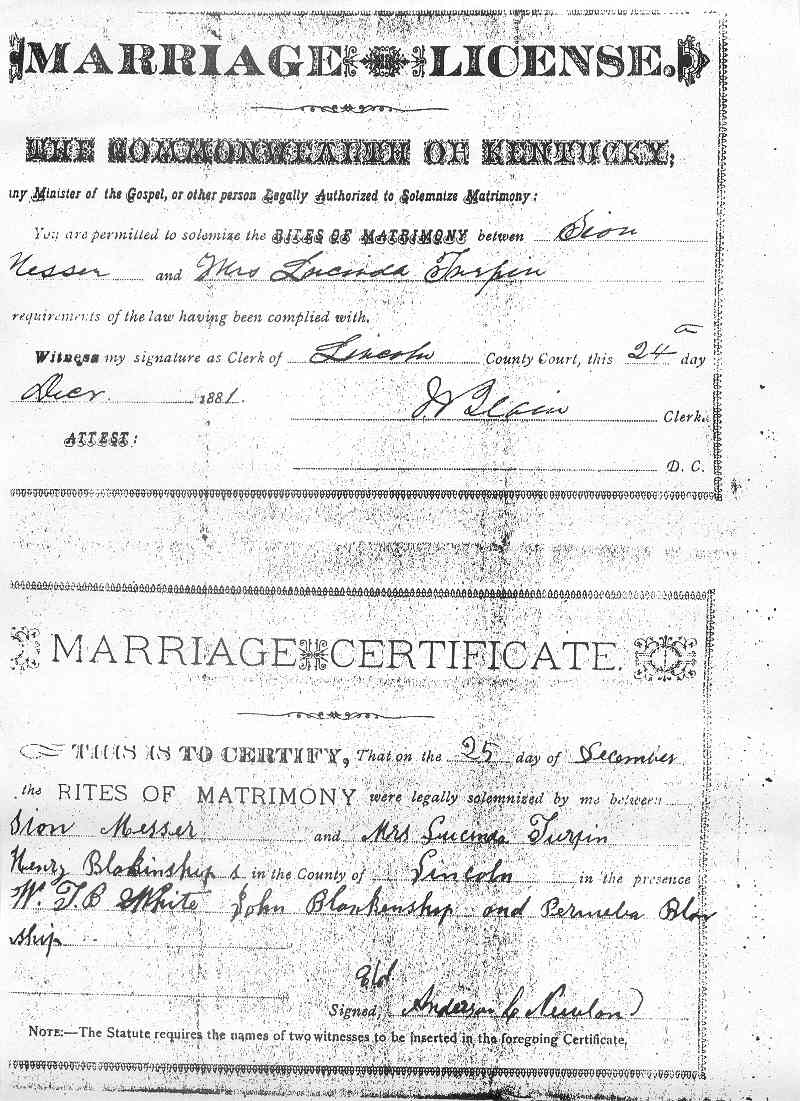 MARRIAGE LICENSE.
THE COMMONWEALTH OF KENTUCKY;
any Minister of the Gospel, or other person Legally Authorized to Solemnize Matrimony:
You are permitted to solemize the RITES OF MATRIMONY betwen Sion
Messer and Mrs Lucinda Turpin
requirements of the law having been complied with.
Witness my signature as Clerk of Lincoln County Court, this 24 day
Decr. 1881.
Clerk.
ATTEST:
D. C.
MARRIAGE CERTIFICATE.
THIS IS TO CERTIFY, That on the 25 day of December
the RITES OF MATRIMONY were legally solemnized by me between
Sion Messer and Mrs Lucinda Turpin
Henry Blakinship s in the County of Lincoln in the presence
W. T. B White John Blankenship and Permelia Blan
ship
Eld
Signed, Anderson C Newlon
NOTE:—The Statute requires the names of two witnesses to be inserted in the foregoing Certificate.